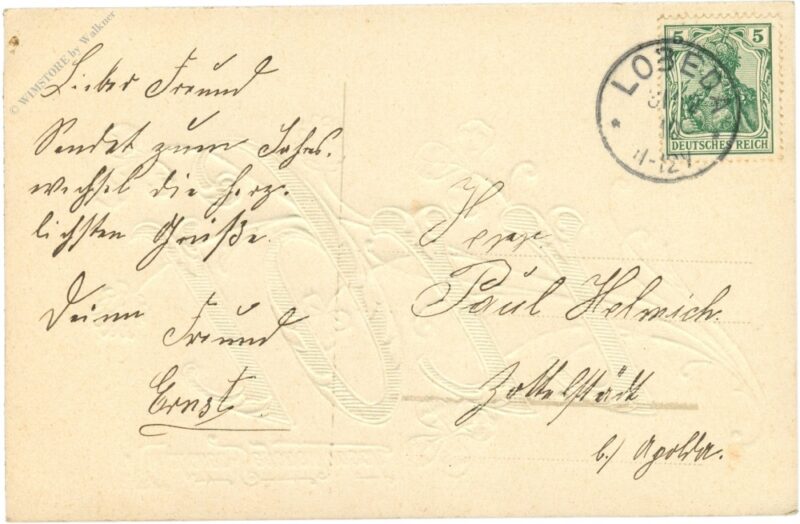 © WIMSTORE by Walkner
Lieber Freund
Sendet zum Jahres-
wechsel die herz-
lichsten Grüße.
Deinn Freund
Ernst.
5 5
DEUTSCHES REICH
LOBEDA
11-12V
Herr
Paul Helmich.
Zottelstädt
b/ Apolda.